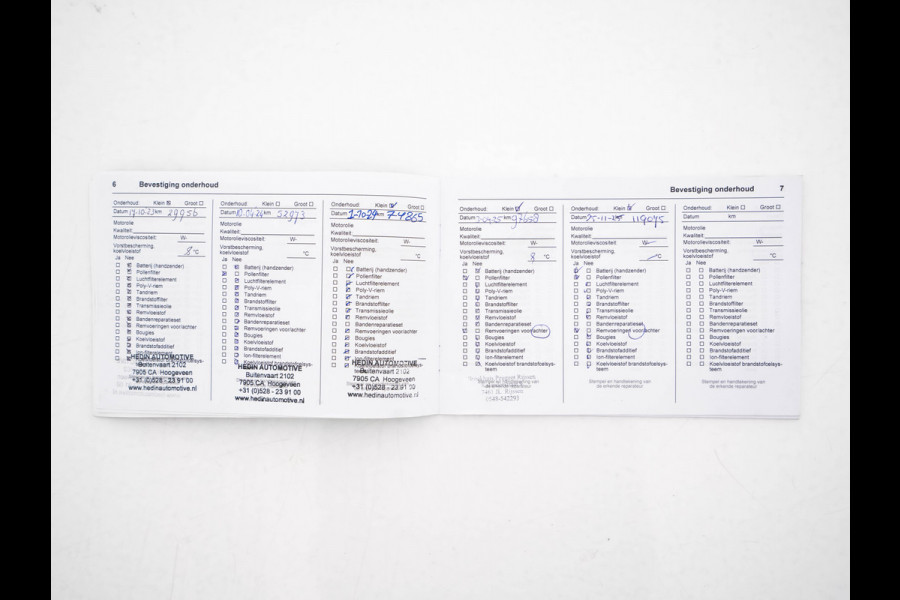 6 Bevestiging onderhoud
Onderhoud: Klein Groot
Datum 17-10-23 km 29956
Motorolie
Kwaliteit:
Motorolieviscositeit: W-
Vorstbescherming,
koelvloeistof -8 °C
Ja Nee
Batterij (handzender)
Pollenfilter
Luchtfilterelement
Poly-V-riem
Tandriem
Brandstoffilter
Transmissieolie
Remvloeistof
Bandenreparatieset
Remvoeringen voor/achter
Bougies
Koelvloeistof
Brandstofadditief
Ion-filterelement
HEDIN AUTOMOTIVE
Buitenvaart 2102
7905 CA Hoogeveen
+31 (0)528 - 23 91 00
www.hedinautomotive.nl
Onderhoud: Klein Groot
Datum km 52973
Motorolie
Kwaliteit:
Motorolieviscositeit: W-
Vorstbescherming,
koelvloeistof °C
Ja Nee
Batterij (handzender)
Pollenfilter
Luchtfilterelement
Poly-V-riem
Tandriem
Brandstoffilter
Transmissieolie
Remvloeistof
Bandenreparatieset
Remvoeringen voor/achter
Bougies
Koelvloeistof
Brandstofadditief
Ion-filterelement
HEDIN AUTOMOTIVE
Buitenvaart 2102
7905 CA Hoogeveen
+31 (0)528 - 23 91 00
www.hedinautomotive.nl
Onderhoud: Klein Groot
Datum km 74865
Motorolie
Kwaliteit:
Motorolieviscositeit: W-
Vorstbescherming,
koelvloeistof °C
Ja Nee
Batterij (handzender)
Pollenfilter
Luchtfilterelement
Poly-V-riem
Tandriem
Brandstoffilter
Transmissieolie
Remvloeistof
Bandenreparatieset
Remvoeringen voor/achter
Bougies
Koelvloeistof
Brandstofadditief
Ion-filterelement
HEDIN AUTOMOTIVE
Buitenvaart 2102
7905 CA Hoogeveen
+31 (0)528 - 23 91 00
www.hedinautomotive.nl
Bevestiging onderhoud 7
Onderhoud: Klein Groot
Datum km
Motorolie
Kwaliteit:
Motorolieviscositeit: W-
Vorstbescherming,
koelvloeistof °C
Ja Nee
Batterij (handzender)
Pollenfilter
Luchtfilterelement
Poly-V-riem
Tandriem
Brandstoffilter
Transmissieolie
Remvloeistof
Bandenreparatieset
Remvoeringen voor/achter
Bougies
Koelvloeistof
Brandstofadditief
Ion-filterelement
Koelvloeistof brandstofcelsys-
teem
Stempel en handtekening van
de erkende reparateur
0548-542291
Onderhoud: Klein Groot
Datum 25-11-25 119045
Motorolie
Kwaliteit:
Motorolieviscositeit: W-
Vorstbescherming,
koelvloeistof °C
Ja Nee
Batterij (handzender)
Pollenfilter
Luchtfilterelement
Poly-V-riem
Tandriem
Brandstoffilter
Transmissieolie
Remvloeistof
Bandenreparatieset
Remvoeringen voor/achter
Bougies
Koelvloeistof
Brandstofadditief
Ion-filterelement
Koelvloeistof brandstofcelsys-
teem
Stempel en handtekening van
de erkende reparateur
Onderhoud: Klein Groot
Datum km
Motorolie
Kwaliteit:
Motorolieviscositeit: W-
Vorstbescherming,
koelvloeistof °C
Ja Nee
Batterij (handzender)
Pollenfilter
Luchtfilterelement
Poly-V-riem
Tandriem
Brandstoffilter
Transmissieolie
Remvloeistof
Bandenreparatieset
Remvoeringen voor/achter
Bougies
Koelvloeistof
Brandstofadditief
Ion-filterelement
Koelvloeistof brandstofcelsys-
teem
Stempel en handtekening van
de erkende reparateur